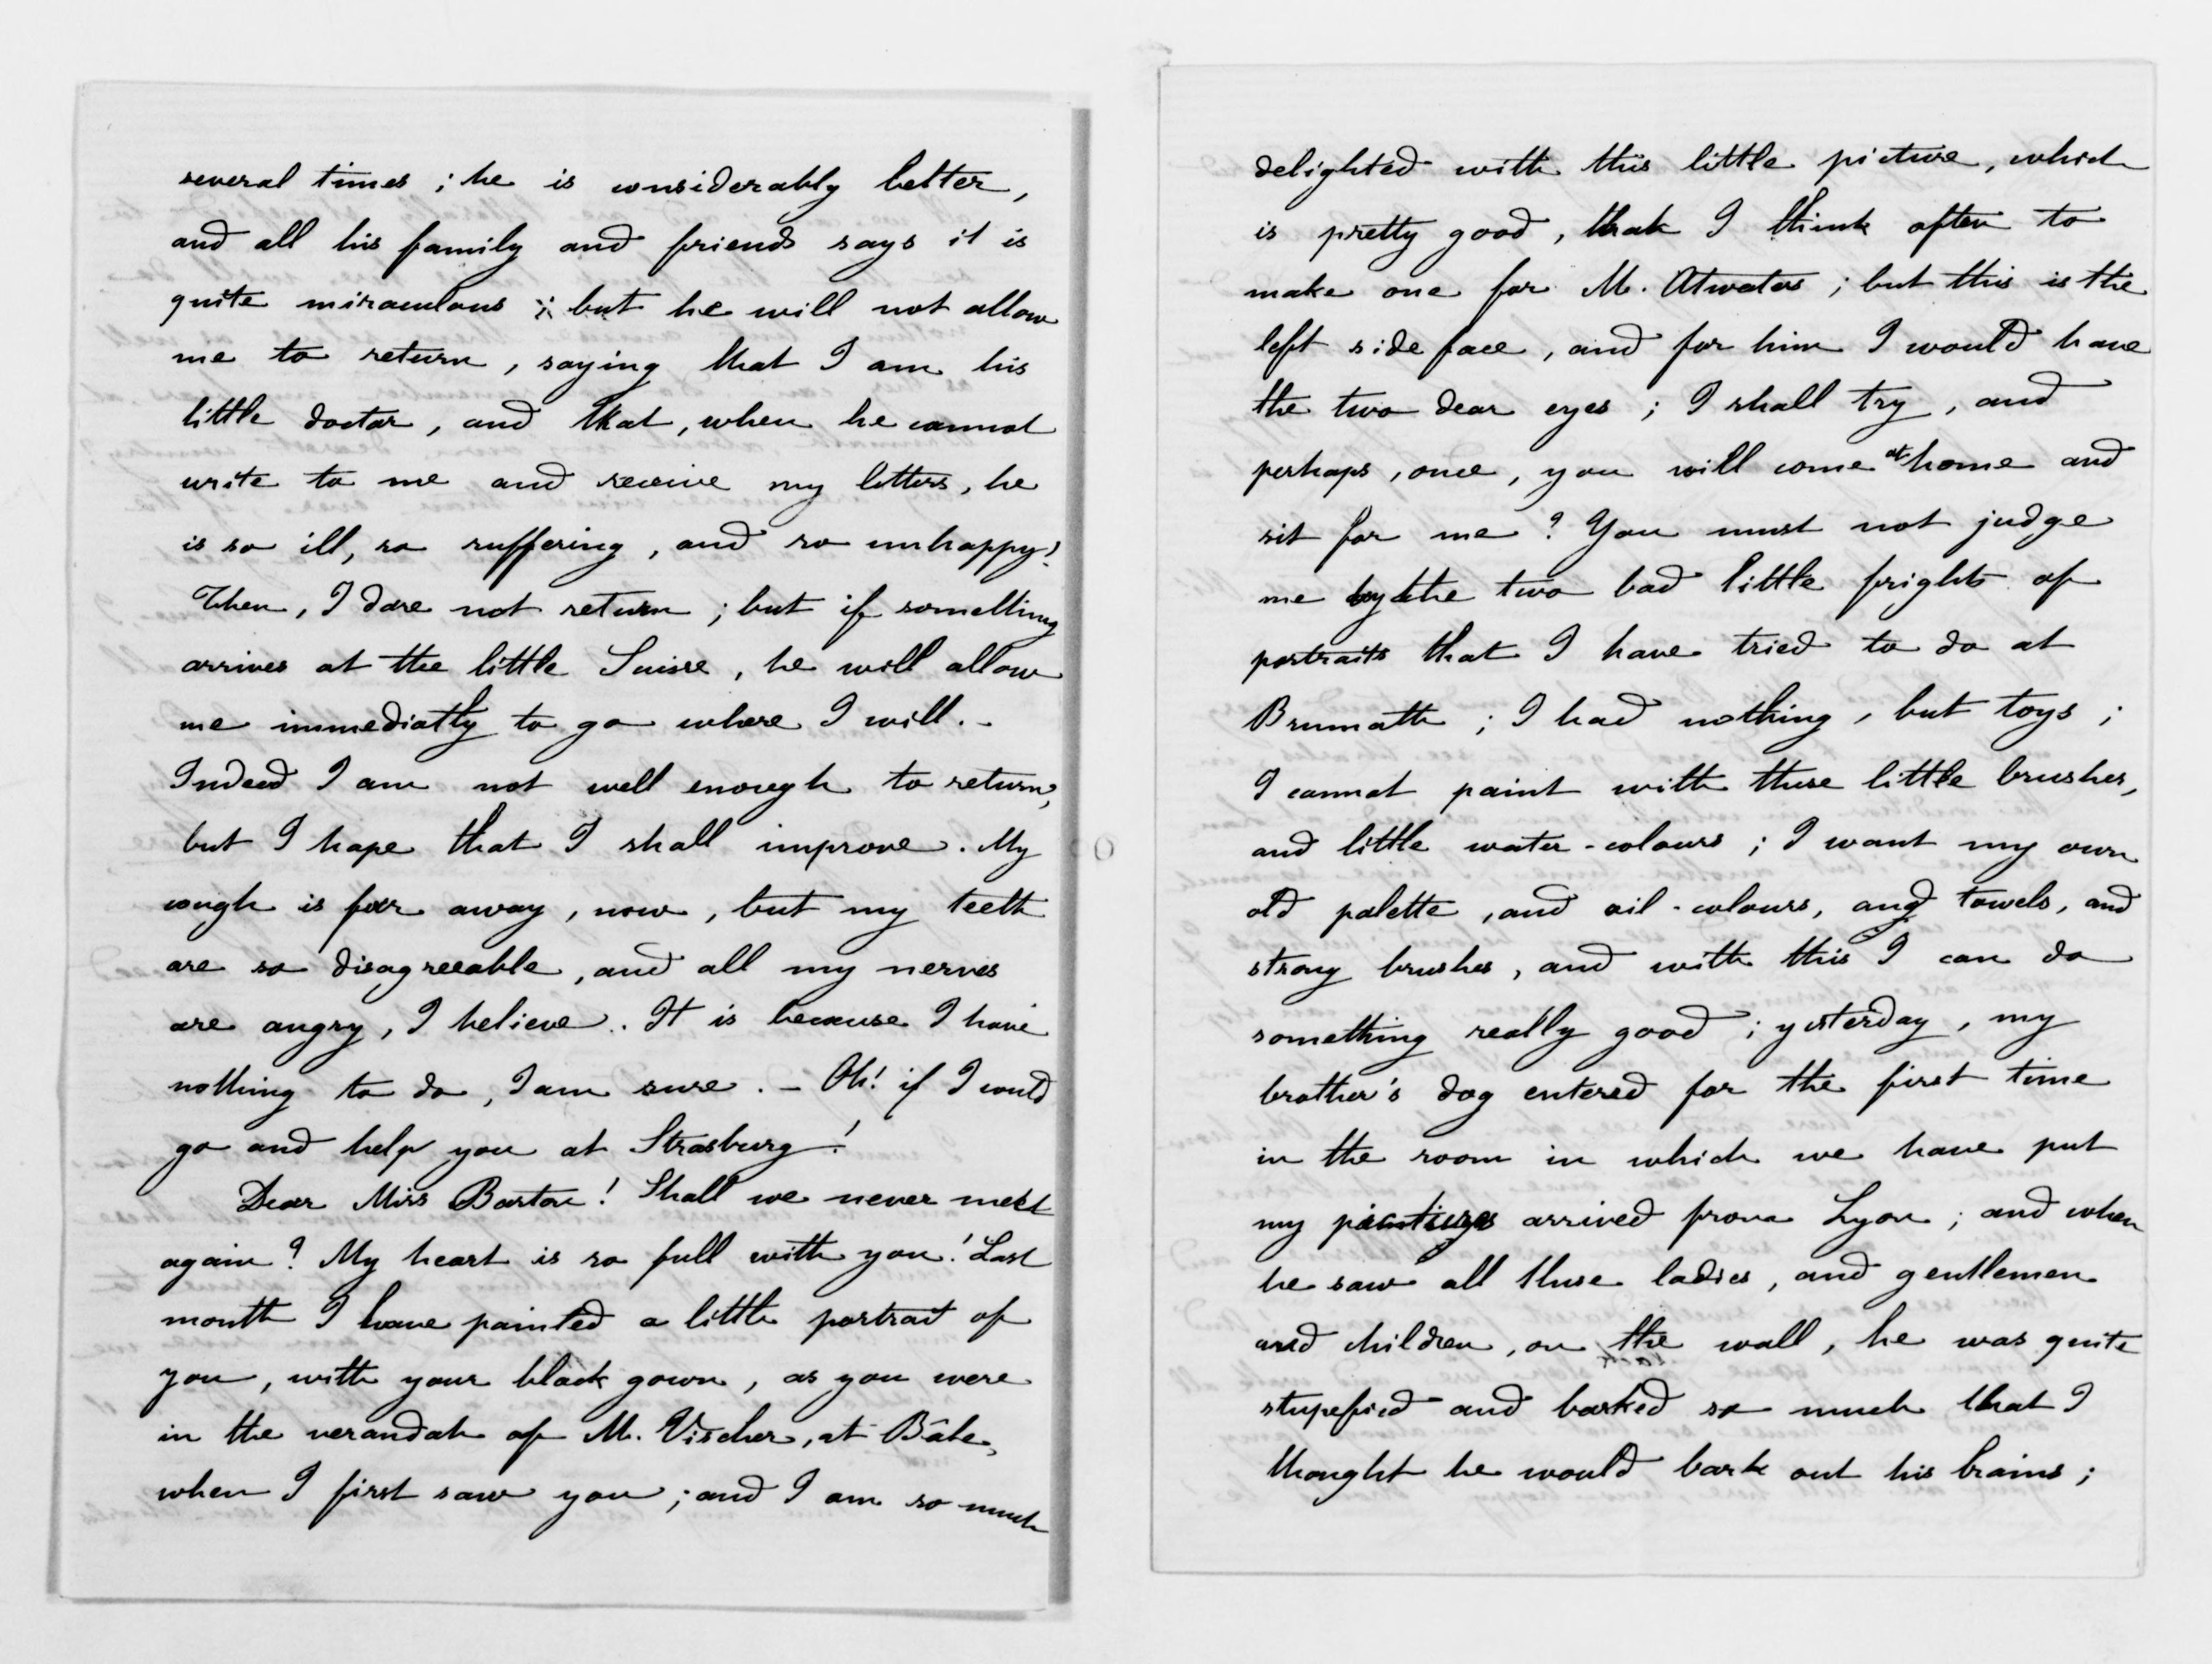 several times ; he is considerably better,
and all his family and friends says it is
quite miraculous ; but he will not allow
me to return, saying that I am his
little doctor, and that, when he cannot
write to me and receive my letters, he
is so ill, so suffering, and so unhappy!
Then, I dare not return ; but if something
arrives at the little Suisse, he will allow
me immediatly to go where I will. -
Indeed I am not well enough to return,
but I hope that I shall improve. My
cough is far away, now, but my teeth
are so disagreeable, and all my nerves
are angry, I believe. It is because I have
nothing to do, I am sure. - Oh! if I could
go and help you at Strasburg!
Dear Miss Barton! Shall we never meet
again? My heart is so full with you! Last
month I have painted a little portrait of
you, with your black gown, as you were
in the verandah of M. Vischer, at Bâle,
when I first saw you ; and I am so much
delighted with this little picture, which
is pretty good, that I think often to
make one for M. Atwater ; but this is the
left side face, and for him I would have
the two dear eyes ; I shall try, and
perhaps, once, you will come at home and
sit for me? You must not judge
me by the two bad little frights of
portraits that I have tried to do at
Brumath ; I had nothing, but toys ;
I cannot paint with these little brushes,
and little water-colours ; I want my own
old palette, and oil-colours, and towels, and
strong brushes, and with this I can do
something really good ; yesterday, my
brother's dog entered for the first time
in the room in which we have put
my paintings arrived from Lyon ; and when
he saw all these ladies, and gentlemen
and children, on the wall, he was quite
stupefied and barked so much that I
thought he would bark out his brains ;